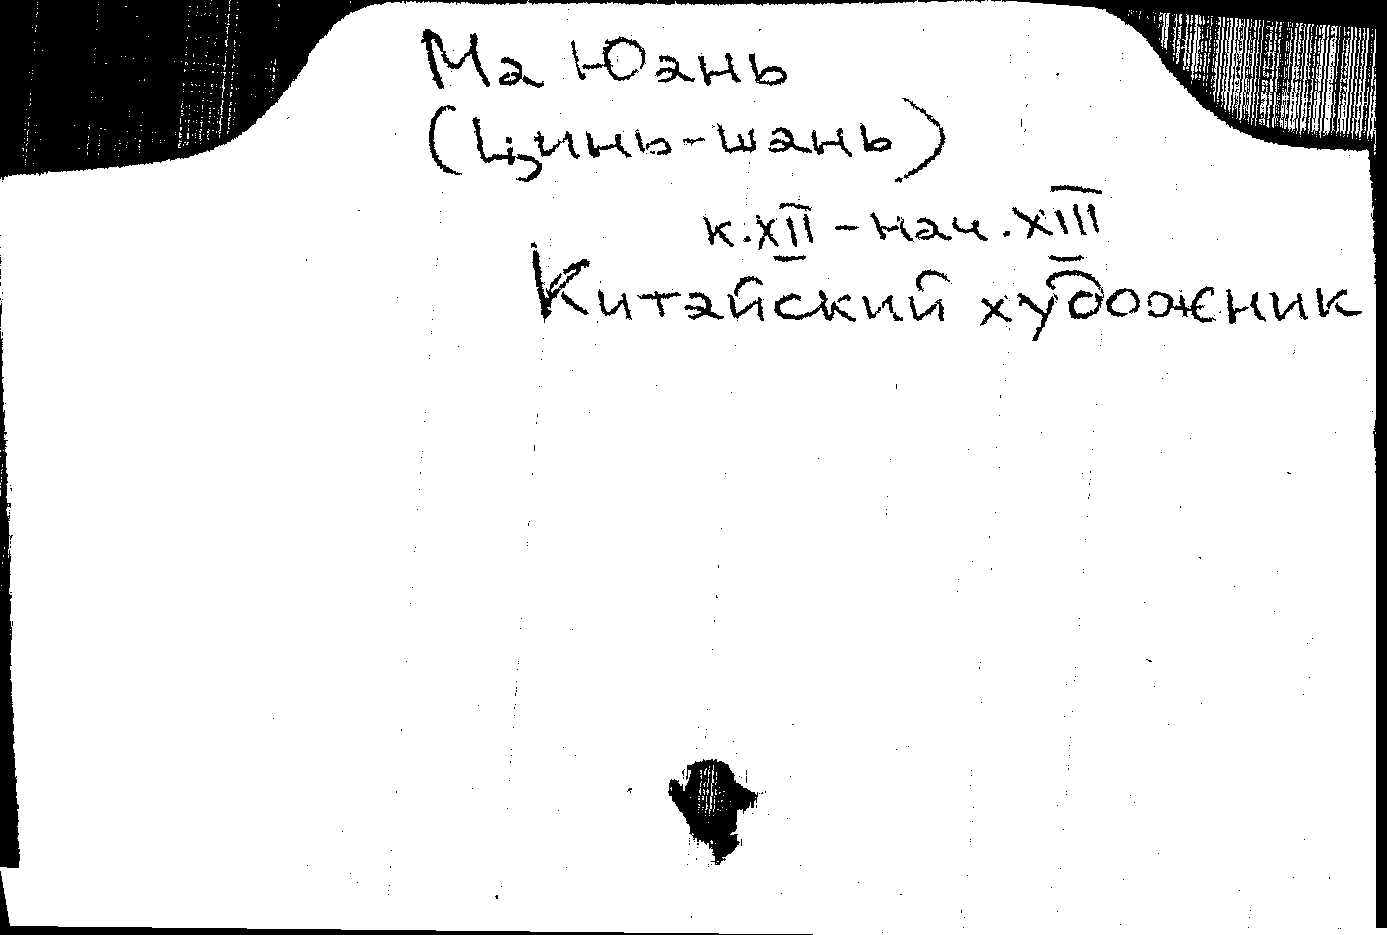 Ма Юань
(Цинь-шань)
к. XII - нач. XIII
Китайский художник